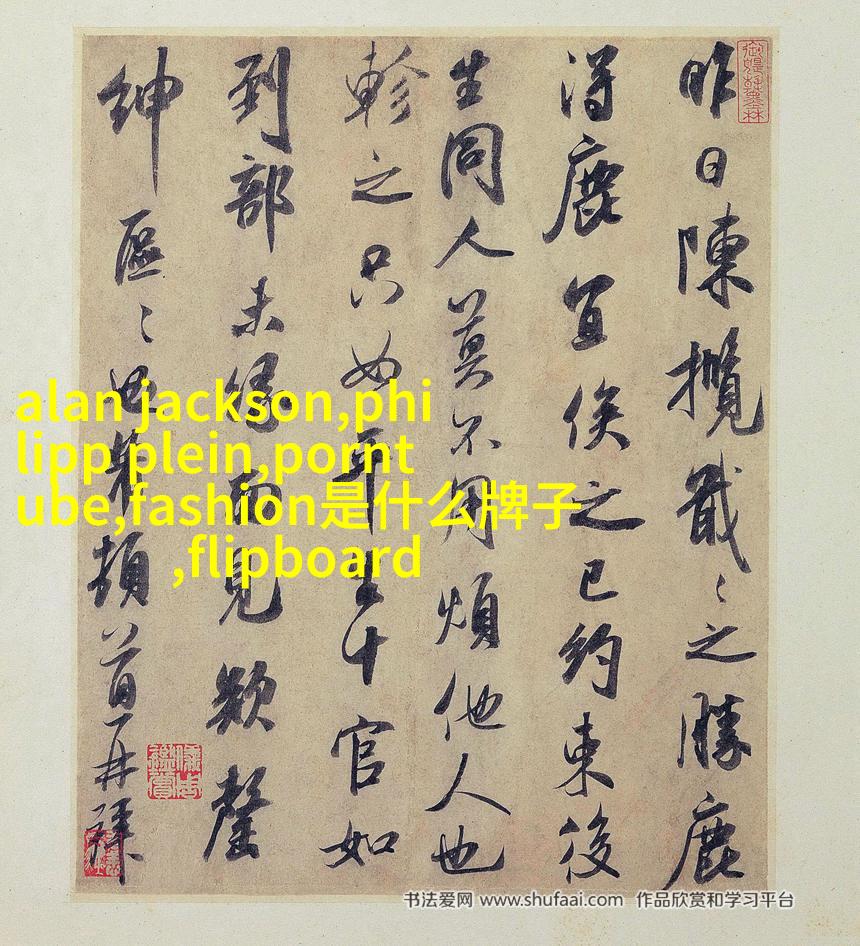 昨日陳攬戢〻之勝鹿
得鹿宜俟之已約束後
生同人莫不用煩他人也
軫之只如平生十官如
到部未面見欵罄
紳區〻頓首再拜
alan jackson,phi
lipp plein,pornt
ube,fashion是什么牌子
,flipboard
书法爱网 www.shufaai.com 作品欣赏和学习平台